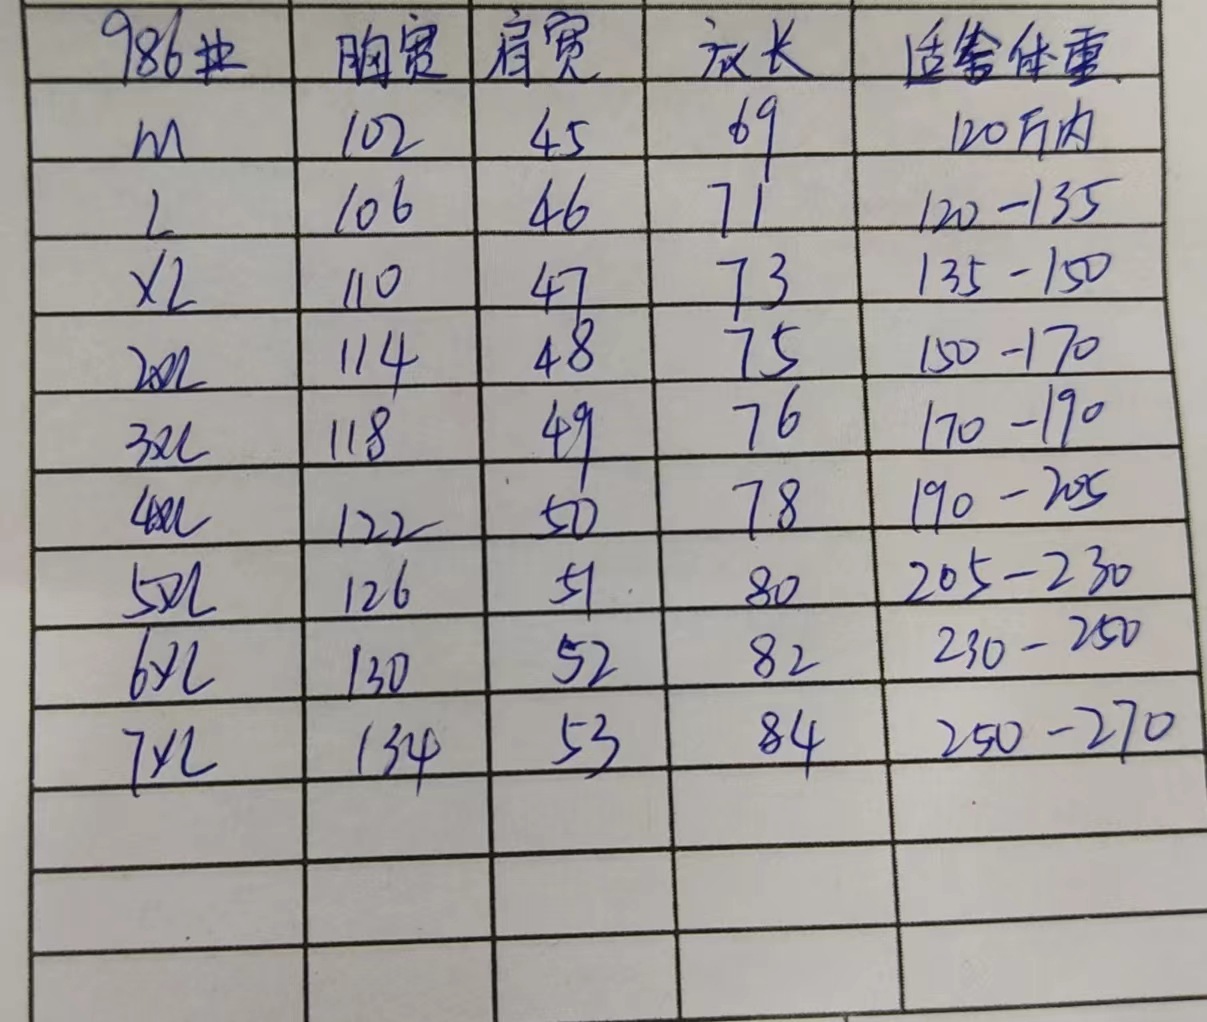 986# 胸宽 肩宽 衣长 适合体重
M 102 45 69 120斤内
L 106 46 71 120-135
XL 110 47 73 135-150
2XL 114 48 75 150-170
3XL 118 49 76 170-190
4XL 122 50 78 190-205
5XL 126 51 80 205-230
6XL 130 52 82 230-250
7XL 134 53 84 250-270